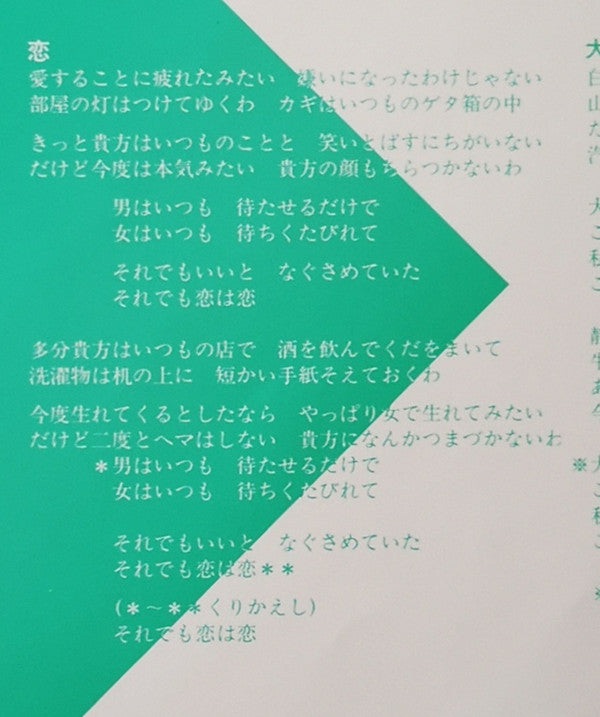 恋
愛することに疲れたみたい　嫌いになったわけじゃない
部屋の灯はつけてゆくわ　カギはいつものゲタ箱の中
きっと貴方はいつものことと　笑いとばすにちがいない
だけど今度は本気みたい　貴方の顔もちらつかないわ
男はいつも　待たせるだけで
女はいつも　待ちくたびれて
それでもいいと　なぐさめていた
それでも恋は恋
多分貴方はいつもの店で　酒を飲んでくだをまいて
洗濯物は机の上に　短かい手紙そえておくわ
今度生れてくるとしたなら　やっぱり女で生れてみたい
だけど二度とヘマはしない　貴方になんかつまづかないわ
＊男はいつも　待たせるだけで
女はいつも　待ちくたびれて
それでもいいと　なぐさめていた
それでも恋は恋＊＊
(＊〜＊＊くりかえし)
それでも恋は恋